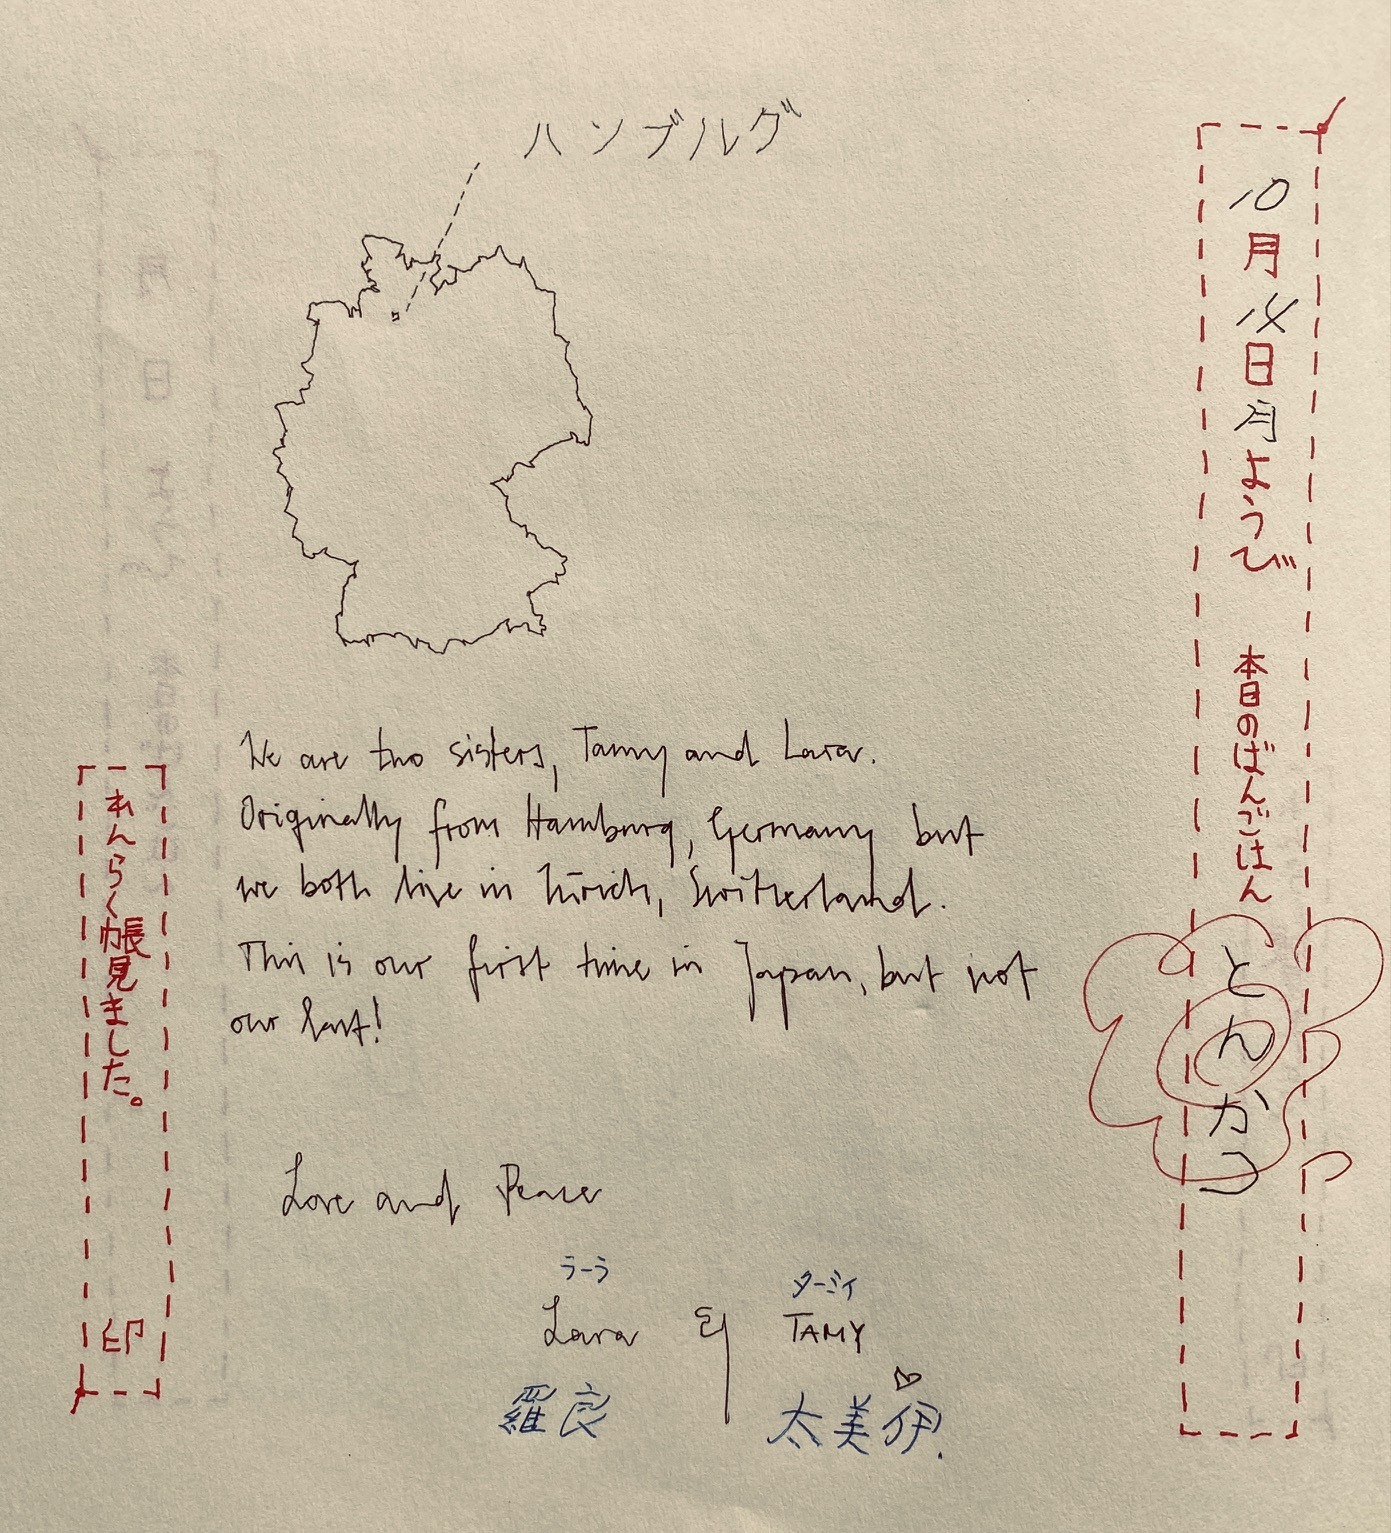 ハンブルグ
10月14日月ようび 本日のばんごはん とんかつ
We are two sisters, Tamy and Lara.
Originally from Hamburg, Germany but
we both live in Zürich, Switzerland.
This is our first time in Japan, but not
our last!
Love and Peace
ラーラ ターミイ
Lara & TAMY
羅良 太美伊.
れんらく帳見ました。 印